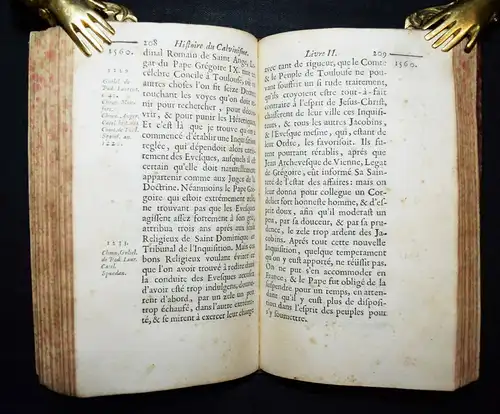 208 Histoire du Calvinisme.
1560.
dinal Romain de Saint Ange, Le-
gat du Pape Grégoire IX. tint un
célébre Concile à Toulouse, où
autres choses l'on fit seize Decrets
touchant les voyes qu'on doit tenir
pour rechercher, pour découvrir,
& pour punir les Héretiques.
Et c'est là que je trouve qu'on a
commencé d'établir une Inquisition
reglée, qui dépendoit alors
des Evesques, ausquels il est
certain qu'elle doit naturellement
appartenir comme aux Juges de la
Doctrine. Néanmoins le Pape Gré-
goire qui estoit extrémement
ne trouvant pas que les Evesques
agissent assez fortement à son gré,
attribua trois ans aprés aux seuls
Religieux de Saint Dominique ce
Tribunal de l'Inquisition. Mais ces
bons Religieux voulant éviter ce
que l'on avoit trouvé à redire dans
la conduite des Evesques accusez
d'avoir esté trop indulgens, donne-
rent d'abord, par un zele un peu
trop échaufé, dans l'autre extrémi-
té, & se mirent à exercer leur charge
1233.
Chron. Guliel.
de Pod. Laur.
Livre II. 209
1560.
avec tant de rigueur, que le Comte
& le Peuple de Toulouse ne pou-
vant souffrir un si rude traitement,
qu'ils croyoient estre tout-à-fait
contraire à l'esprit de Jesus-Christ,
chasserent de leur ville ces Inquisi-
teurs, & tous les autres Jacobins,
& l'Evesque mesme, qui, estant de
leur Ordre, les favorisoit. Ils fu-
rent pourtant rétablis, aprés que
Jean Archevesque de Vienne, Legat
de Grégoire, eût informé Sa Sain-
teté de l'estat des affaires: mais on
leur donna pour collegue un Cor-
delier fort honneste homme, & d'es-
prit doux, afin qu'il moderast un
peu, par sa douceur, & par sa pru-
dence, le zele trop ardent des Ja-
cobins. Aprés tout cette nouvelle
Inquisition, quelque temperament
qu'on y eust apporté, ne réüssit pas.
On ne pût s'en accommoder en
France, & le Pape fut obligé de la
suspendre pour un temps, en atten-
dant qu'il y eust plus de disposi-
tion dans l'esprit des peuples pour
s'y soumettre.